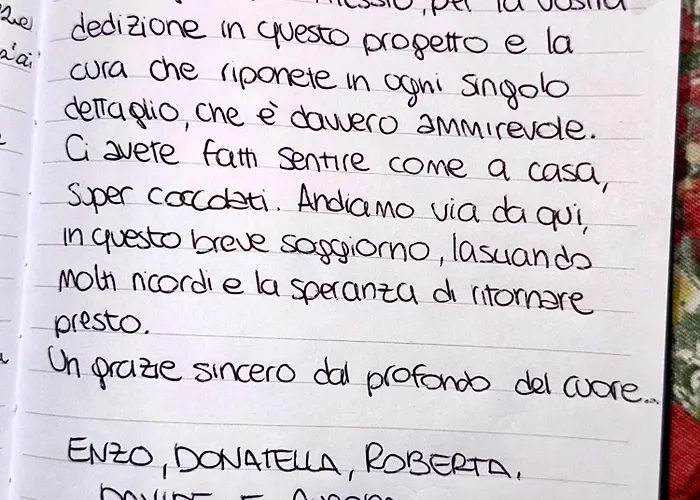 per la vostra
dedizione in questo progetto e la
cura che riponete in ogni singolo
dettaglio, che è davvero ammirevole.
Ci avete fatti sentire come a casa,
super coccolati. Andiamo via da qui,
in questo breve soggiorno, lasciando
molti ricordi e la speranza di ritornare
presto.
Un grazie sincero dal profondo del cuore...
ENZO, DONATELLA, ROBERTA,
DAVIDE E